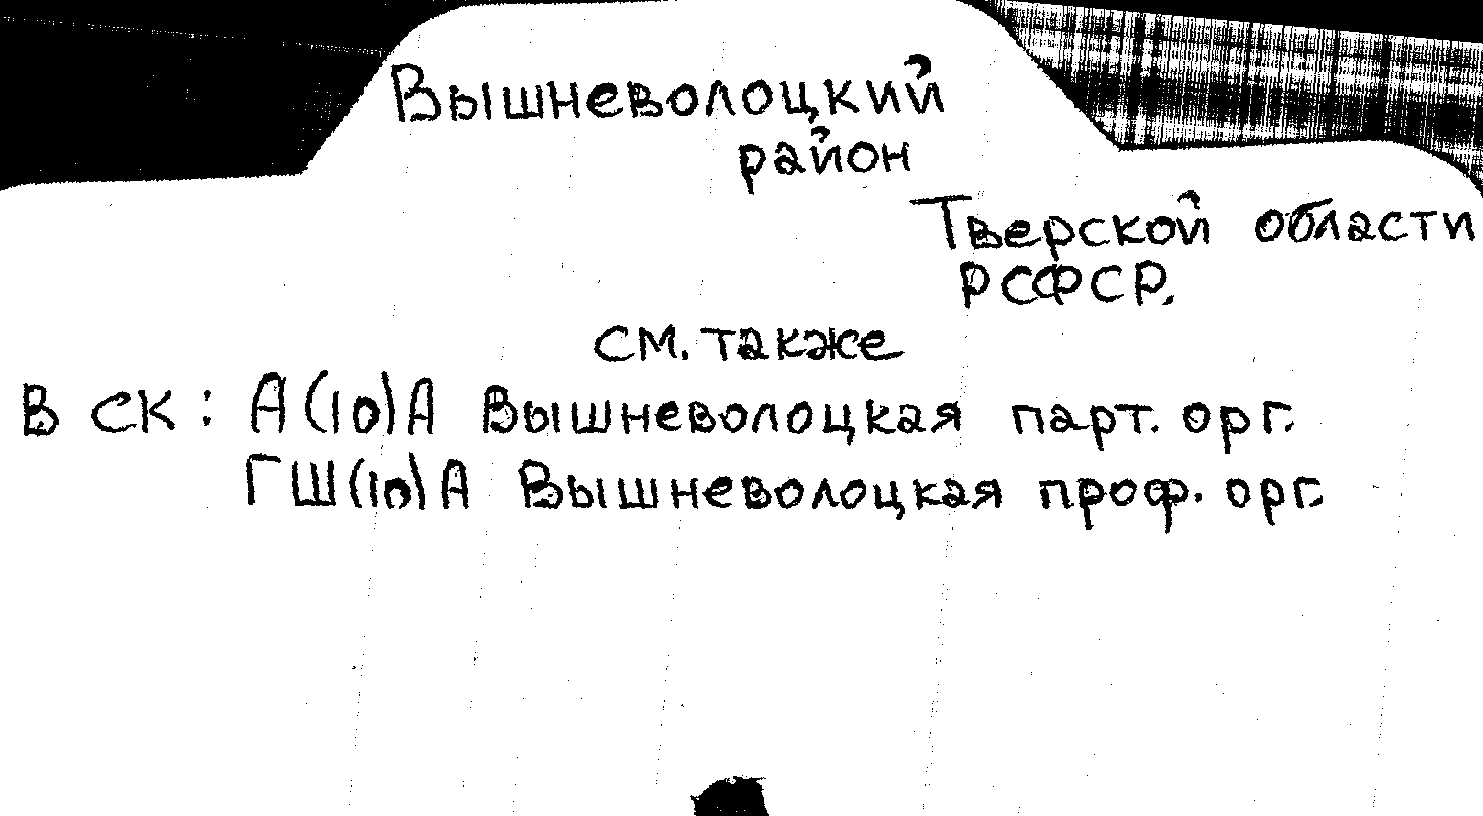 Вышневолоцкий
район
Тверской области
РСФСР.
см. также
В СК: А(10)А Вышневолоцкая парт. орг.
ГШ(10)А Вышневолоцкая проф. орг.